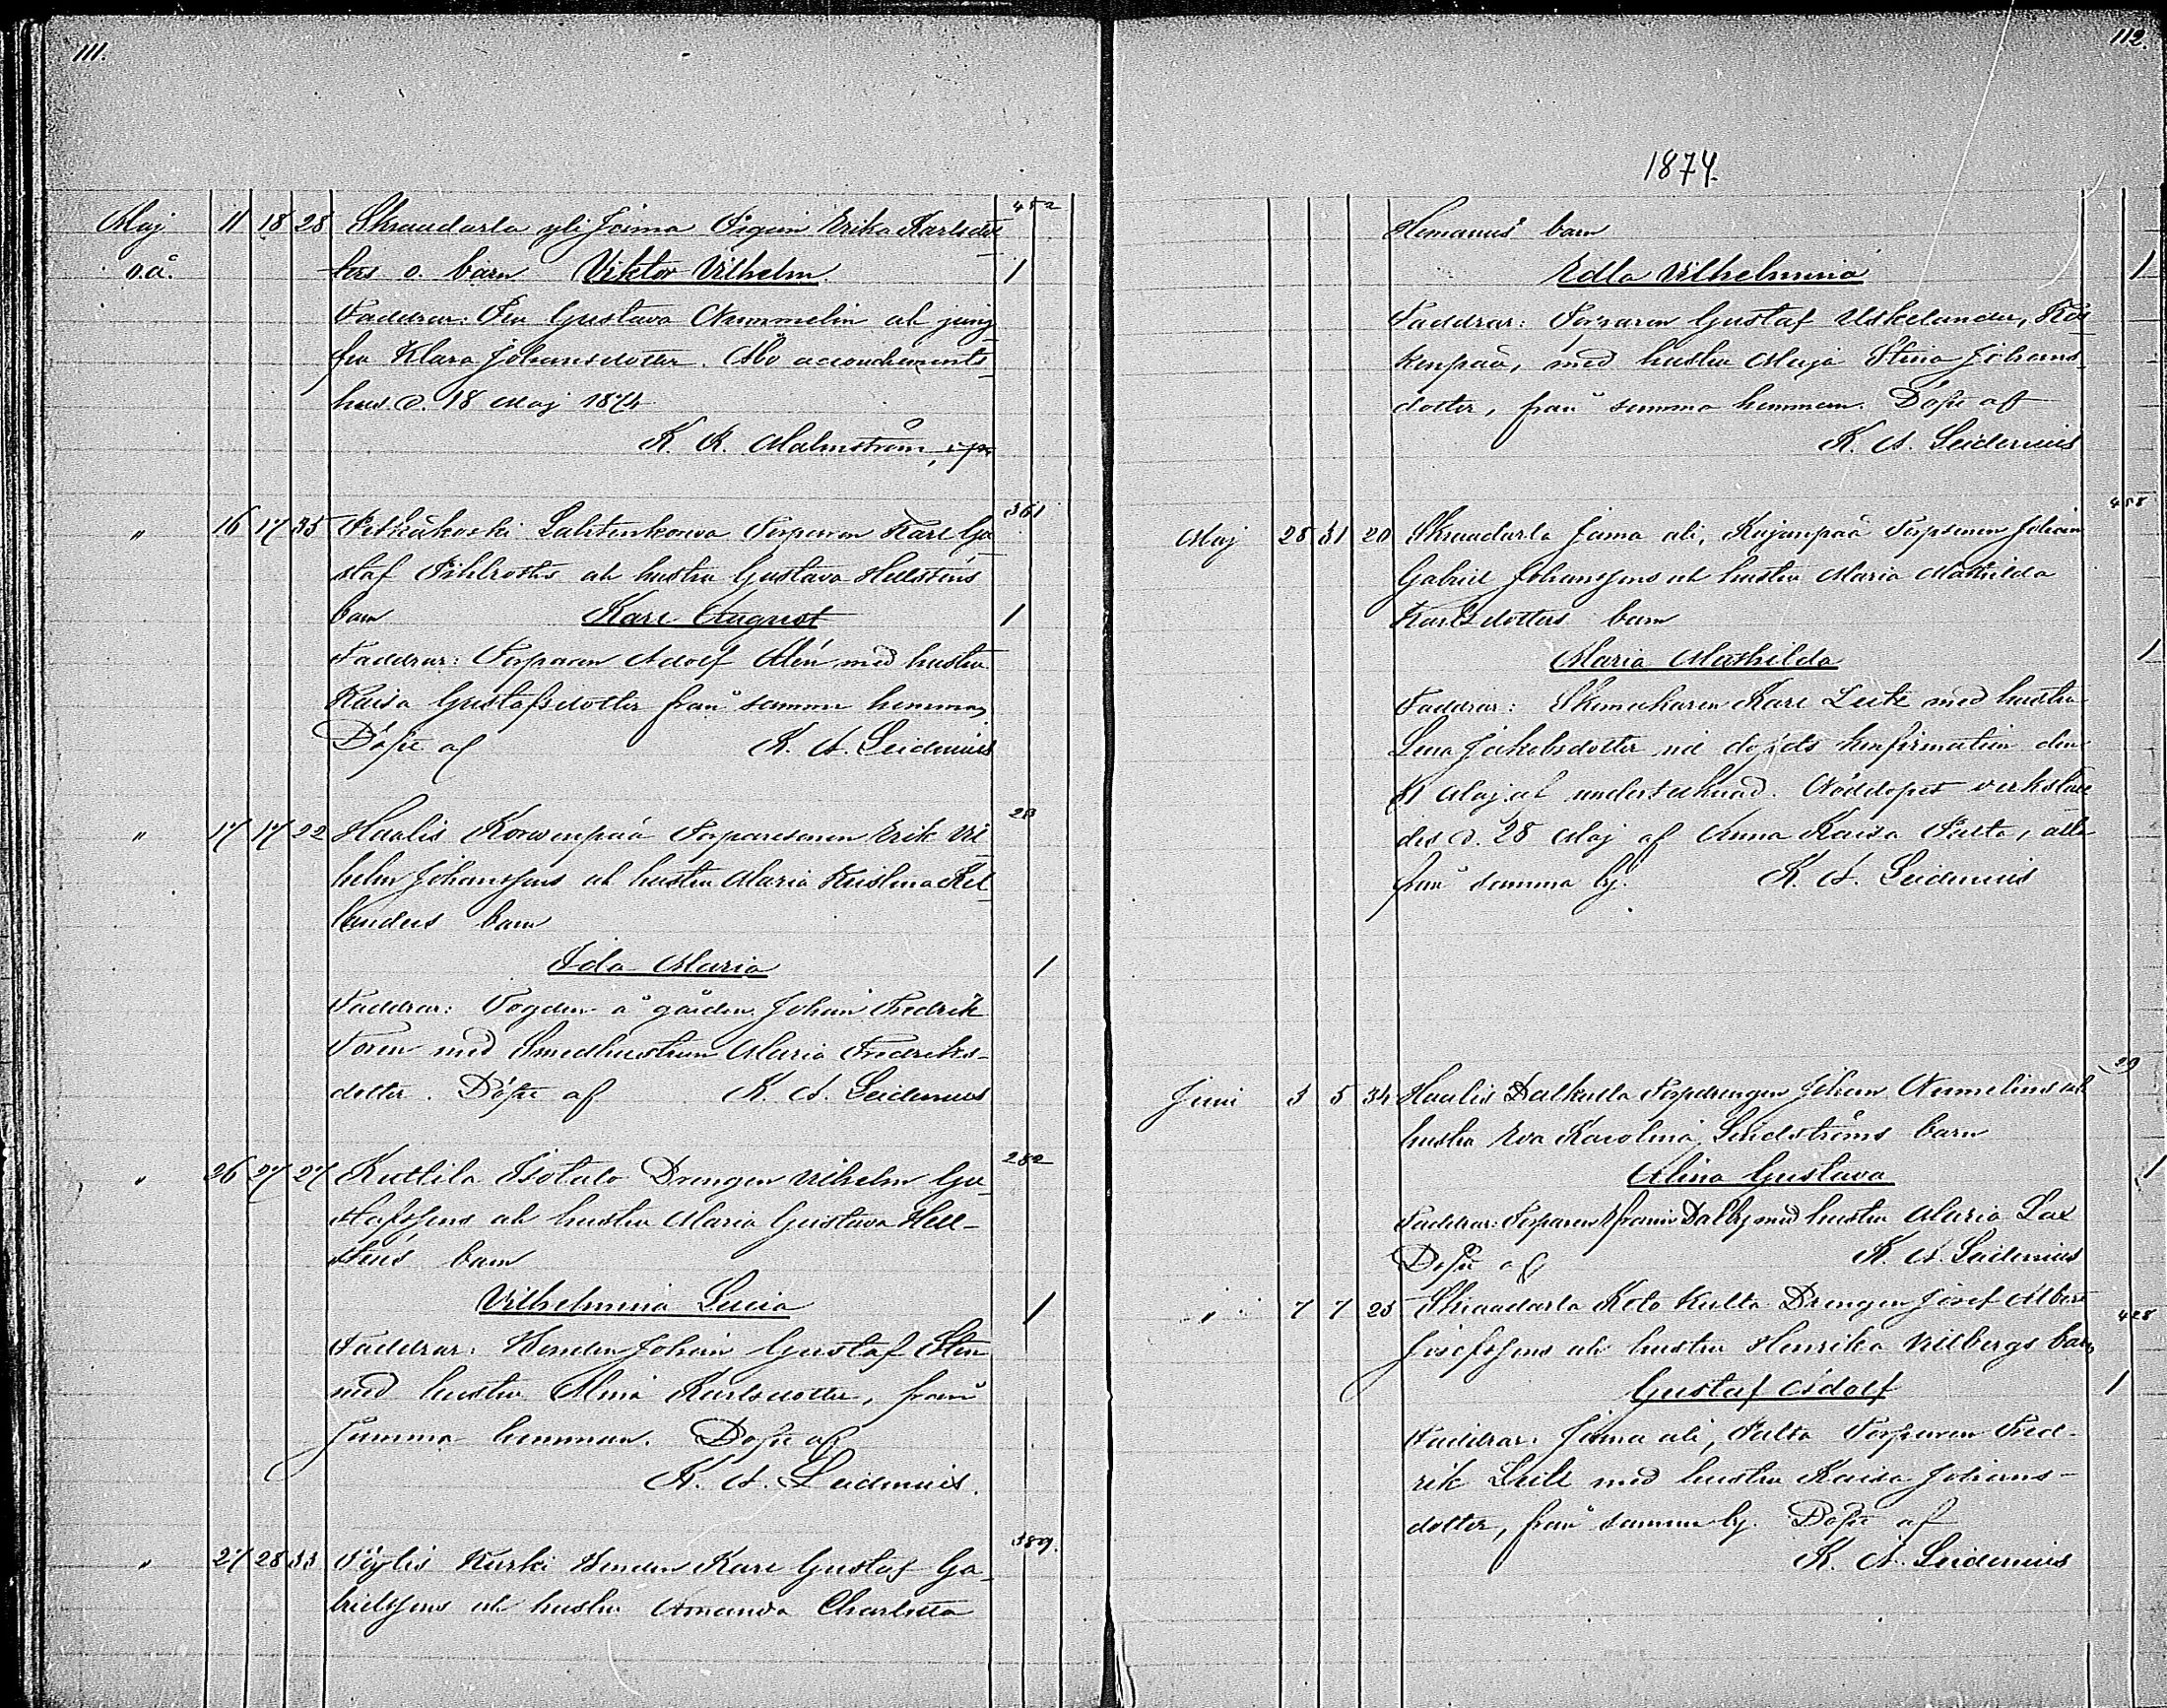 111.
452
Maj 11 18 28 Skraudarla yli Jaima Pigan Erika Karlsdot-
o.ä. ters o. barn Viktor Vilhelm. 1
Faddrar: Fru Gustava Nummelin och jung-
fru Klara Johansdotter. Åbo accouchements-
hus d. 18 Maj 1874
K. R. Malmström,
361
" 16 17 35 Pitkäkoski Lahtenkorva Torparen Karl Gu-
staf Pihlroths och hustru Gustava Hellsténs
barn Karl August 1
Faddrar: Torparen Adolf Alén med hustru
Kaisa Gustafsdotter från samma hemman,
Döpte af K. A. Leidenius
23
" 17 17 22 Haalis Korvenpää Torparesonen Erik Vil-
helm Johanssons och hustru Maria Kristina Kel-
landers barn
Ida Maria 1
Faddrar: Fogden å gården Johan Fredrik
Toren med Smedhustrun Maria Fredriks-
dotter. Döpte af K. A. Leidenius
282
" 26 27 27 Kuttila Isotalo Drengen Vilhelm Gu-
stafssons och hustru Maria Gustava Hell-
sténs barn
Vilhelmina Lucia 1
Faddrar: Bonden Johan Gustaf Sten
med hustru Mina Karlsdotter, från
samma hemman. Döpte af
K. A. Leidenius.
389.
" 27 28 33 Töylis Kurki Bonden Karl Gustaf Ga-
brielssons och hustru Amanda Charlotta
112.
1874.
Homanus barn
Edla Vilhelmina 1
Faddrar: Torparen Gustaf Uskelander, Kos-
kenpää, med hustru Maja Stina Johans-
dotter, från samma hemman. Döpte af
K. A. Leidenius
458
Maj 28 31 20 Skraudarla Jama ali, Kujanpää Torpsonen Johan
Gabriel Johanssons och hustru Maria Mathilda
Karlsdotters barn
Maria Mathilda 1
Faddrar: Skomakaren Karl Leito med hustru
Lena Jakobsdotter vid dopets konfirmation den
31 Maj af undertecknad. Nöddopet verkstäl-
des d. 28 Maj af Anna Kaisa Palta, alla
från samma by. K. A. Leidenius
29
Juni 3 5 34 Haalis Dalkulla Torpdrengen Johan Numelins och
hustru Eva Karolina Lindströms barn
Alina Gustava 1
Faddrar: Torparen Efraim Dalby med hustru Maria Lax
Döpte af K. A. Leidenius
" 7 7 25 Skraudarla Koto Kulta Drengen Josef Albert 428
Josefssons och hustru Henrika Vilbergs barn
Gustaf Adolf 1
Faddrar: Jama ali, Palta Torparen Fred-
rik Leile med hustru Kaisa Johans-
dotter, från samma by. Döpte af
K. A. Leidenius